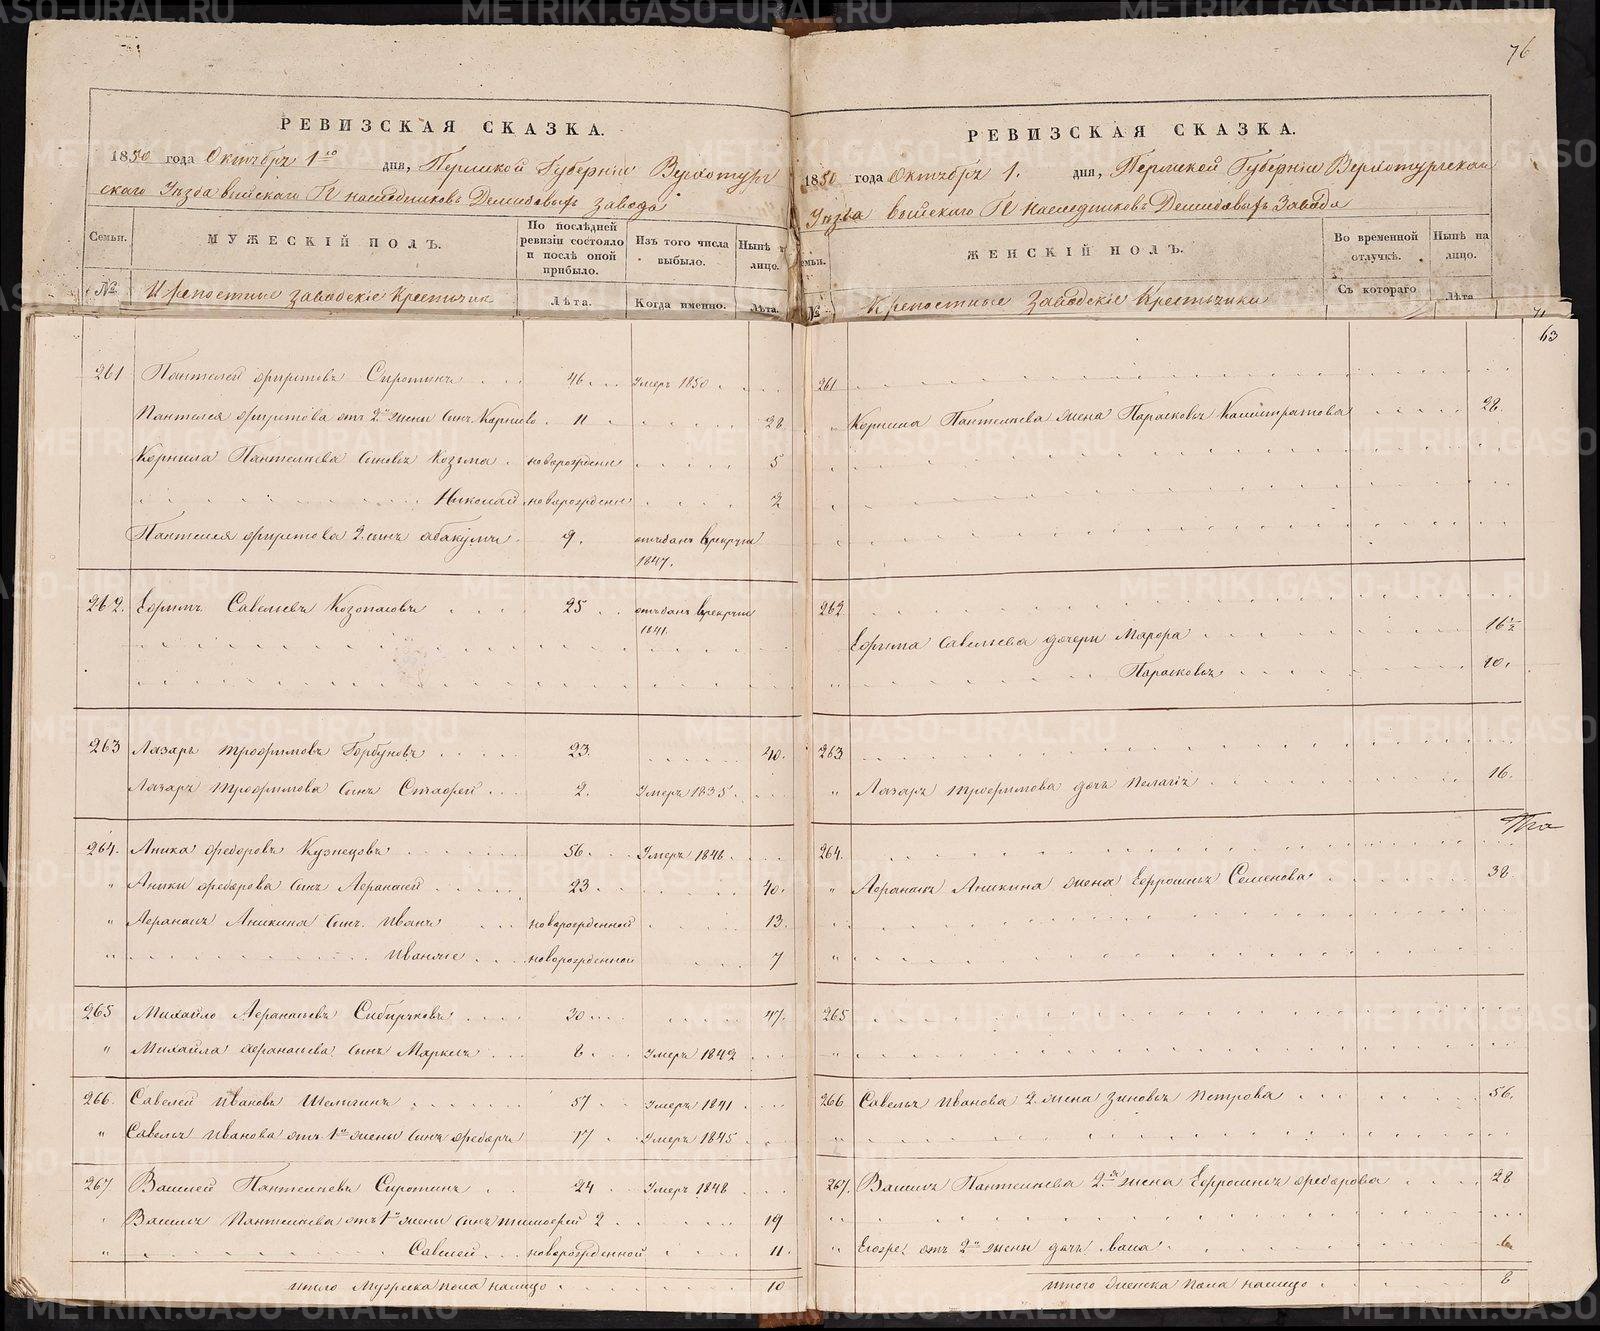 76
РЕВИЗСКАЯ СКАЗКА.
1850 года Октября 1го дня, Пермской Губернии Верхотур
скаго Уезда Выйскаго Гг Наследниковъ Демидовыхъ завода
Семьи. МУЖЕСКІЙ ПОЛЪ. По последней ревизіи состояло и после оной прибыло. Изъ того числа выбыло. Ныне на лицо.
№ Крепостные заводские Крестьяне Лѣта. Когда именно. Лѣта.
261 Пантелей Фирстовъ Сиротинъ 46 Умеръ 1850
Пантелея Фирстова отъ 2й жены сынъ Корнило 11 28
Корнила Пантелеева сыновья Козьма новорожденн 5
Николай новорожденн 2
Пантелея Фирстова 2 сынъ Абакумъ 9. отъданъ врекруты
1847.
262. Ефимъ Савельевъ Козопасовъ 25 отъданъ врекруты
1841.
263 Лазарь Трофимовъ Горбуновъ 23. 40.
Лазаря Трофимова сынъ Стафей 2. Умеръ 1835.
264. Аника Федоровъ Кузнецовъ 56. Умеръ 1846.
" Аники Федорова сынъ Афанасей 23. 40.
" Афанасья Аникина сынъ Иванъ новорожденной 13.
" Иванъже новорожденной 7
265 Михайло Афанасьевъ Сибиряковъ 30 47.
" Михайла Афанасьева сынъ Маркелъ 8. Умеръ 1842
266. Савелей Ивановъ Шелигинъ 57 Умеръ 1841
" Савелья Иванова отъ 1й жены сынъ Федоръ 17 Умеръ 1845
267 Василей Пантелеевъ Сиротинъ 24 Умеръ 1848
Василья Пантелеева отъ 1й жены сынъ Тимофей 2 19
" Савелей новорожденной 11.
итого Мужеска пола налицо 10
РЕВИЗСКАЯ СКАЗКА.
1850 года Октября 1. дня, Пермской Губернии Верхотурскаго
Уезда Выйскаго Гг Наследниковъ Демидовыхъ Завода
Семьи. ЖЕНСКІЙ ПОЛЪ. Во временной отлучкѣ. Ныне на лицо.
№ Крепостные Заводские Крестьянки Съ котораго Лѣта
63
261
" Корнила Пантелеева жена Парасковья Калистратова 28.
262
Ефима Савельева дочери Марфа 16½
" Парасковья 10.
263
" Лазаря Трофимова дочь Пелагия 16.
264.
" Афанасья Аникина жена Ефросинья Семенова 38
"
"
265
"
266 Савелья Иванова 2 жена Зиновья Петрова 56.
"
267. Василья Пантелеева 2я жена Ефросинья Федорова 28
" Егоже, отъ 2й жены дочь Васа 6
итого женска пола налицо 8
METRIKI.GASO-URAL.RU